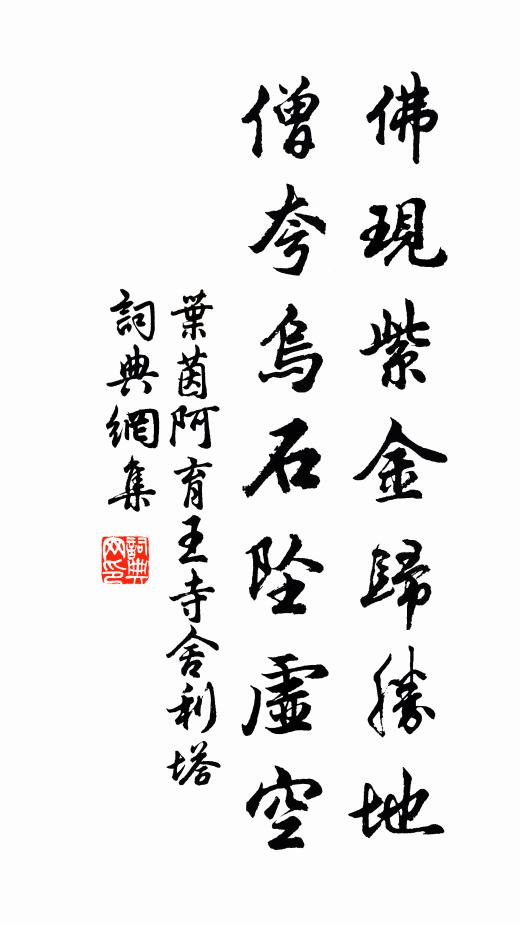 佛現紫金歸勝地
僧夸烏石墜虛空
葉茵阿育王寺舍利塔
詞典網集
詞典網印